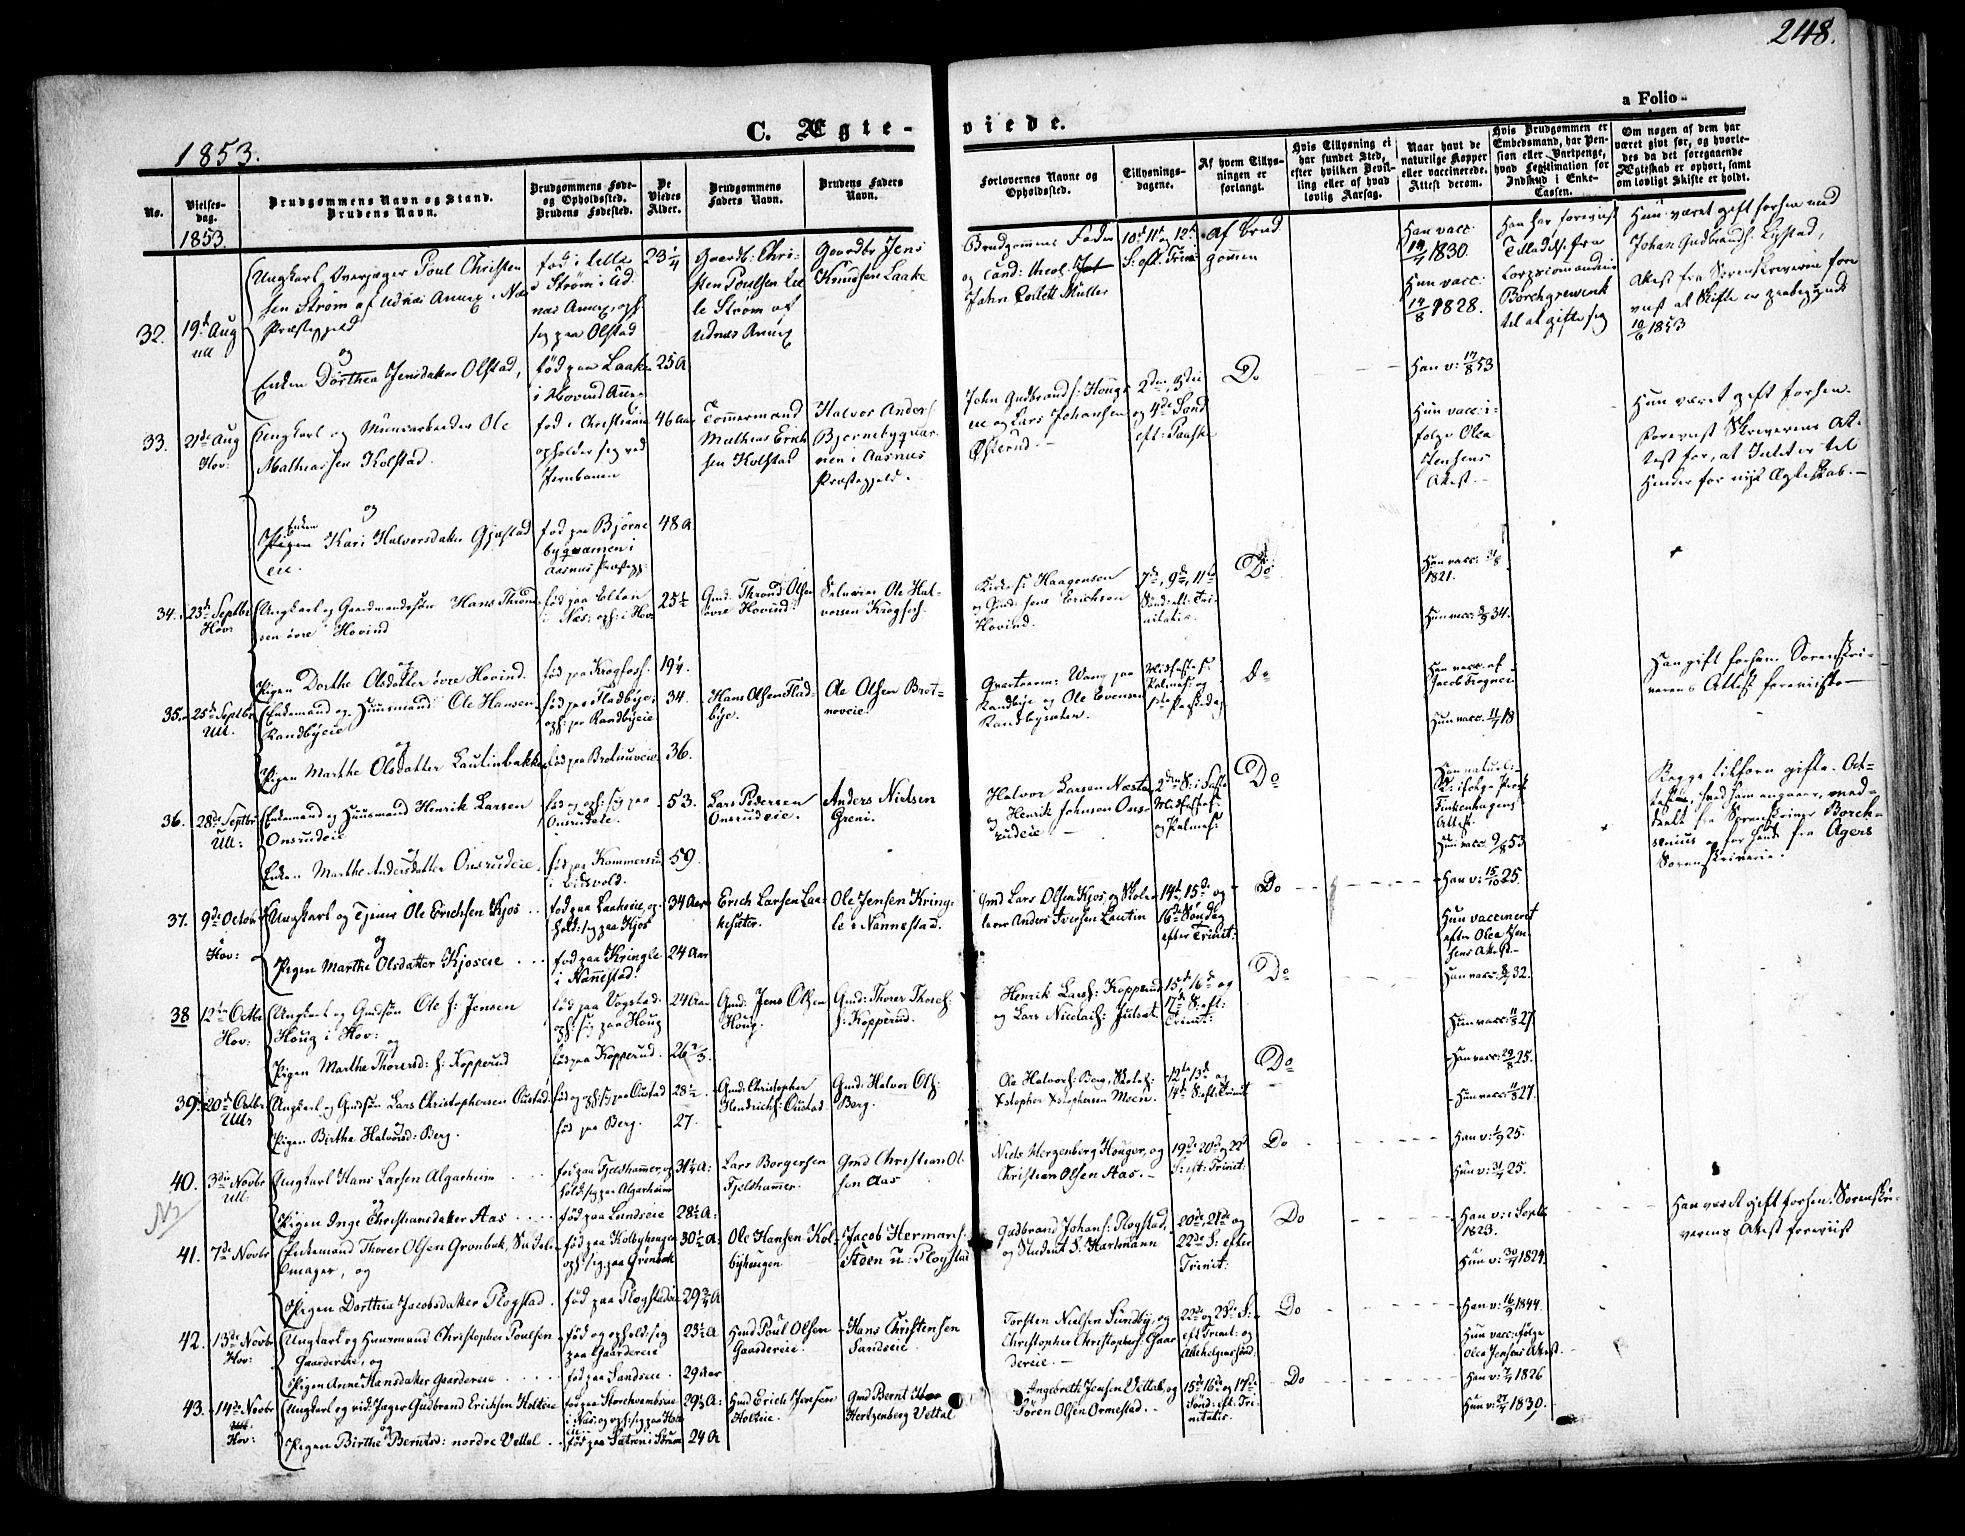 248.
a Folio
C. Ægte-viede.
1853.
No.
Vielses-dag.
Brudgommens Navn og Stand.
Brudens Navn.
Brudgommens Føde- og Opholdssted.
Brudens Fødested.
De Viedes Alder.
Brudgommens Faders Navn.
Brudens Faders Navn.
Forlovernes Navne og Opholdssted.
Tillysnings-dagene.
Af hvem Tillysningen er forlangt.
Hvis Tillysning ei har fundet Sted, efter hvilken Bevilling eller af hvad lovlig Aarsag.
Naar havt de naturlige Kopper eller vaccinerede. Attest derom.
Hvis Brudgommen er Embedsmand, har Pension eller Vartpenge, hvad Legitimation for Indskud i Enke-Cassen.
Om nogen af dem har været gift før, og hvorledes da det foregaaende Ægteskab er ophørt, samt om lovligt Skifte er holdt.
1853
32.
19d Aug
Ull
Ungkarl Overjæger Poul Christensen Strøm af Udnæs Annex i Næs Præstegjeld
og
Enken Dorthea Jensdatter Olstad,
fød i Lille Strøm i Udnæs Annex, oph: sig paa Olstad
fød paa Laake i Hovind Annex
23 1/4
25 A
Gaardb: Christen Poulsen Lille Strøm af Udnæs Annex
Gaardbr Jens Knudsen Laake
Brudgommens Fader og Cand: theol: John Collett Müller
10d 11t og 12t S: eft: Trin:
Af Brudgommen
Han vacc: 1830.
Hun vacc: 1828.
Han har foreviist Tilladelse fra Corpscommandeur Borchgrewink til at gifte sig
Hun været gift forhen med Johan Gudbrands: Olstad, Attest fra Sorenskriveren foreviist at Skifte er paabegyndt 1853
33.
21de Aug
Hov:
Ungkarl og Muurarbeider Ole Mathiassen Kolstad.
og
Enken Kari Halvorsdatter Gjestad eie.
fød i Christiania opholder sig ved Jernbanen
fød paa Bjørnebyqvarnen i Aasnæs Præstegj:
46 Aar
48 A
Tømmermand Mathias Erichsen Kolstad
Halvor Anders: Bjørnebyqvarnen i Aasnæs Præstegjeld.
John Gudbrands: Hougeie og Lars Johansen Østerud.
2den, 3die og 4de Sønd eft: Paaske
Do
Han v: 17/8 53
Hun vacc: ifølge Olea Jensens Attest.
Hun været gift forhen. Foreviist Skriverens Attest for, at Intet er til Hinder for nyt Ægteskab.
34.
23d Septbr
Hov:
Ungkarl og Gaardmandssøn Hans Throndsen øvre Hovind
og
Pigen Dorthe Olsdatter øvre Hovind.
fød paa Elton i Næs; oph: i Hov:
fød paa Krogfos.
25 1/2
19 1/4.
Gmd: Thrond Olsen øvre Hovind.
Selveier Ole Halvorsen Krogfos.
Haagensen og Gmd: Jens Erichsen Hovind.
7de, 9de, 11te Sønd: eft: Trinitatis.
Do
Han vacc: 1821.
Hun vacc: 34.
35.
25d Septbr
Ull.
Enkemand og Huusmand Ole Hansen Randbyeie
og
Pigen Marthe Olsdatter Lautinbakken
fød paa Fladbyeie; oph: paa Randbyeie
fød paa Brotnueie
34.
36.
Hans Olsen Fladbyeie.
Ole Olsen Brotnueie.
Wang paa Randbye og Ole Evensen Randbysæter.
Midfaste S: Palmes: og 1ste Paaskedag
Do
Han vacc: af Jacob Trogner
Hun vacc: 18
Han gift forhen. Sorenskriverens Attest foreviiste.
36.
28de Septbr
Ull:
Enkemand og Huusmand Henrik Larsen Onsrudeie
og
Enken Marthe Andersdatter Onsrudeie,
fød og oph: sig paa Onsrudeie.
fød paa Kommersrud i Eidsvold.
53.
59.
Lars Pedersen Onsrudeie.
Anders Nielsen Greni.
Halvor Larsen Næsten og Henrik Johnsen Onsrudeie
2den S: i Faste Midfaste S: og Palmes:
Do
Han naturl: K: ifølge Prost Finkenhagens Attest.
Hun vacc: 9/8 53
Begge tilforn gifte. Attester, hvad ham angaaer, meddeelt fra Sorenskriver Borchsenius og for hende fra Agers Sorenskriverie.
37.
9de Octob
Hov:
Ungkarl og Tjener Ole Erichsen Kjos
og
Pigen Marthe Olsdatter Kjoseie
fød paa Laakeeie, ophold: sig paa Kjos
fød paa Kringle i Nannestad.
34 Aar
24 Aar
Erich Larsen Laakesæter.
Ole Jensen Kringle i Nannestad.
Gmd Lars Olsen Kjos og Skolelærer Anders Iversen Lautin
14de, 15de og 16de Søndag efter Trinit:
Do
Han v: 15/10 25.
Hun vaccineret efter Olea Jensens Attest.
38
12te Octbr
Hov:
Ungkarl og Gmdsøn Ole J: Jensen Houg i Hov:
og
Pigen Marthe Thorersd: J: Kopperud
fød paa Vogstad. oph: sig paa Houg
fød paa Kopperud.
24 Aar
26 2/3.
Gmd: Jens Olsen Houg.
Gmd: Thorer Thores: J: Kopperud.
Henrik Lars: Kopperud og Lars Nicolais: Julset.
15de 16de og 17de S: eft: Trinit:
Do
Han vacc: 32.
Hun vacc: 27.
39.
20de Octbr
Ull:
Ungkarl og Gmdsøn Lars Christophersen Oustad,
og
Pigen Birthe Halvorsd: Berg.
fød og oph: sig paa Oustad
fød paa Berg.
28 1/2
27.
Gmd: Christopher Hendrichs: Oustad.
Gmd: Halvor Ols: Berg.
Ole Halvors: Berg, Xstopher Xstophersen Moen.
12te, 13de og 14de S: eft: Trinit
Do
Han vacc: 25.
Hun vacc: 27.
40.
3die Novbr
Ull:
Ungkarl Hans Larsen Algarheim
og
Pigen Inge Christiansdatter Aas
fød paa Fjeldhammer, ophold: sig paa Algarheim
fød paa Lundseie
31 1/4 A:
28 1/2 A:
Lars Borgersen Fjeldhammer.
Gmd Christian Olsen Aas
Niels Herzenberg Houger, og Christian Olsen Aas.
19de 20de og 22de S: eft: Trinit:
Do
Han v: 25.
Hun v: 25.
41.
7de Novbr
Enkemand Thorer Olsen Grønbæk, Sadelmager, og
Pigen Dorthea Jacobsdatter Plogstad.
fød paa Kolbyhougen oph: sig paa Grønbæk
fød paa Plogstadeie
30 1/2 A:
29 3/4 A
Ole Hansen Kolbyhougen
Jacob Hermans: Steen u: Plogstad
Gudbrand Johans: Plogstad, og Student S: Hartmann
20de, 21de og 22de S: efter Trinit:
Do
Han v: i Septb 1823.
Hun v: 1824.
Han været gift forhen. Sorenskriverens Attest foreviist
42.
13de Novbr
Hov:
Ungkarl og Huusmand Christopher Poulsen Gaardereie, og
Pigen Anne Hansdatter Gaardereie
fød og ophold: sig paa Gaardereie
fød paa Sandseie.
23 1/2 A
29 Aar
Hmd Poul Olsen Gaardereie.
Hans Christensen Sandseie.
Torsten Nielsen Sundby, og Christopher Christophers: Gaardereie.
22de og 23de S: eft Trinit: og Allehelgenssønd:
Do
Han v: 1844.
Hun vacc: ifølge Olea Jensens Attest.
43.
14de Novbr
Hov:
Ungkarl og rid: Jæger Gudbrand Erichsen Holteie
og
Pigen Birthe Berntsd: nordre Vettal
29 1/2 A:
24 A
Hmd Erich Iversen Holteie.
Gmd Bernt Hertzenberg Vettal
Ingebreth Jensen Vettal, og Søren Olsen Ormestad.
15de 16de og 17de Sønd: eft: Trinitatis.
Do
Han v: 1826
Hun v: 1830.